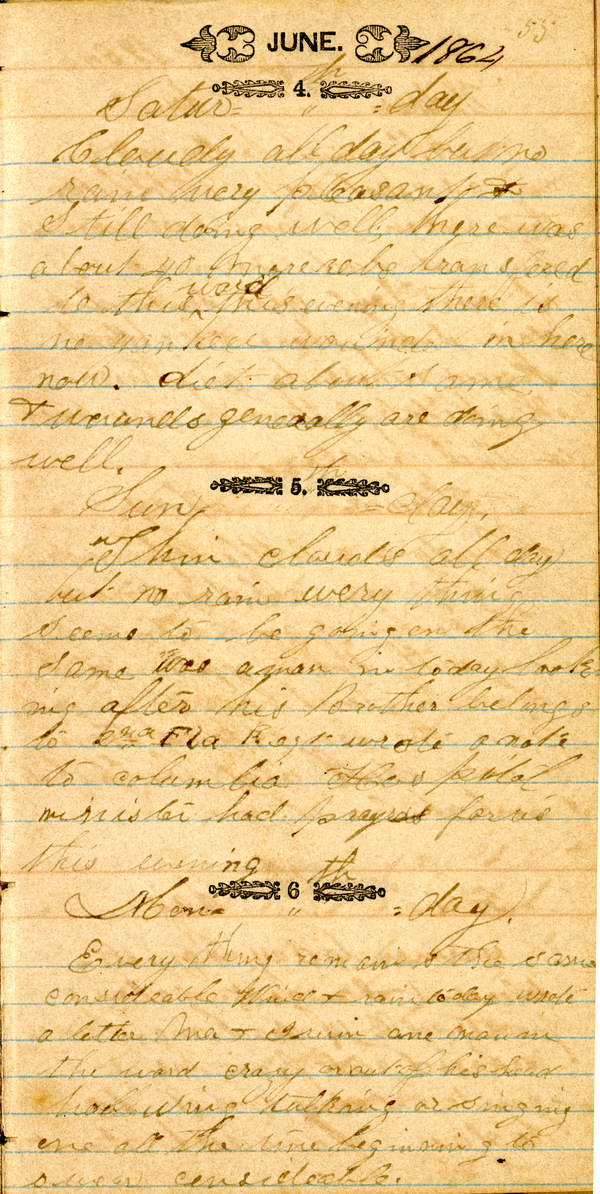 55
JUNE. 1864
4.th
Satur= " =day
Cloudy all day but no
rain very pleasant
Still doing well, there was
about 40 more to be transfered
ward
to this this evening there is
no yankee wounded in here
now. diet about same
& wounds generally are doing
well.
5.th
Sun =day,
Thin clouds all day
but no rain every thing
seems to be going on the
same was a man in today look
ing after his Brother belongs
to 2nd Fla Regt wrote a note
to columbia Hospital
minister had prayers for us
this evening
6th
Mon= " =day,
Every thing remains the same
considerable Wind & rain today wrote
a letter Ma & one man in
the ward crazy or out of his head
hollowing talking or singing
one all the time beginning to
considerable.